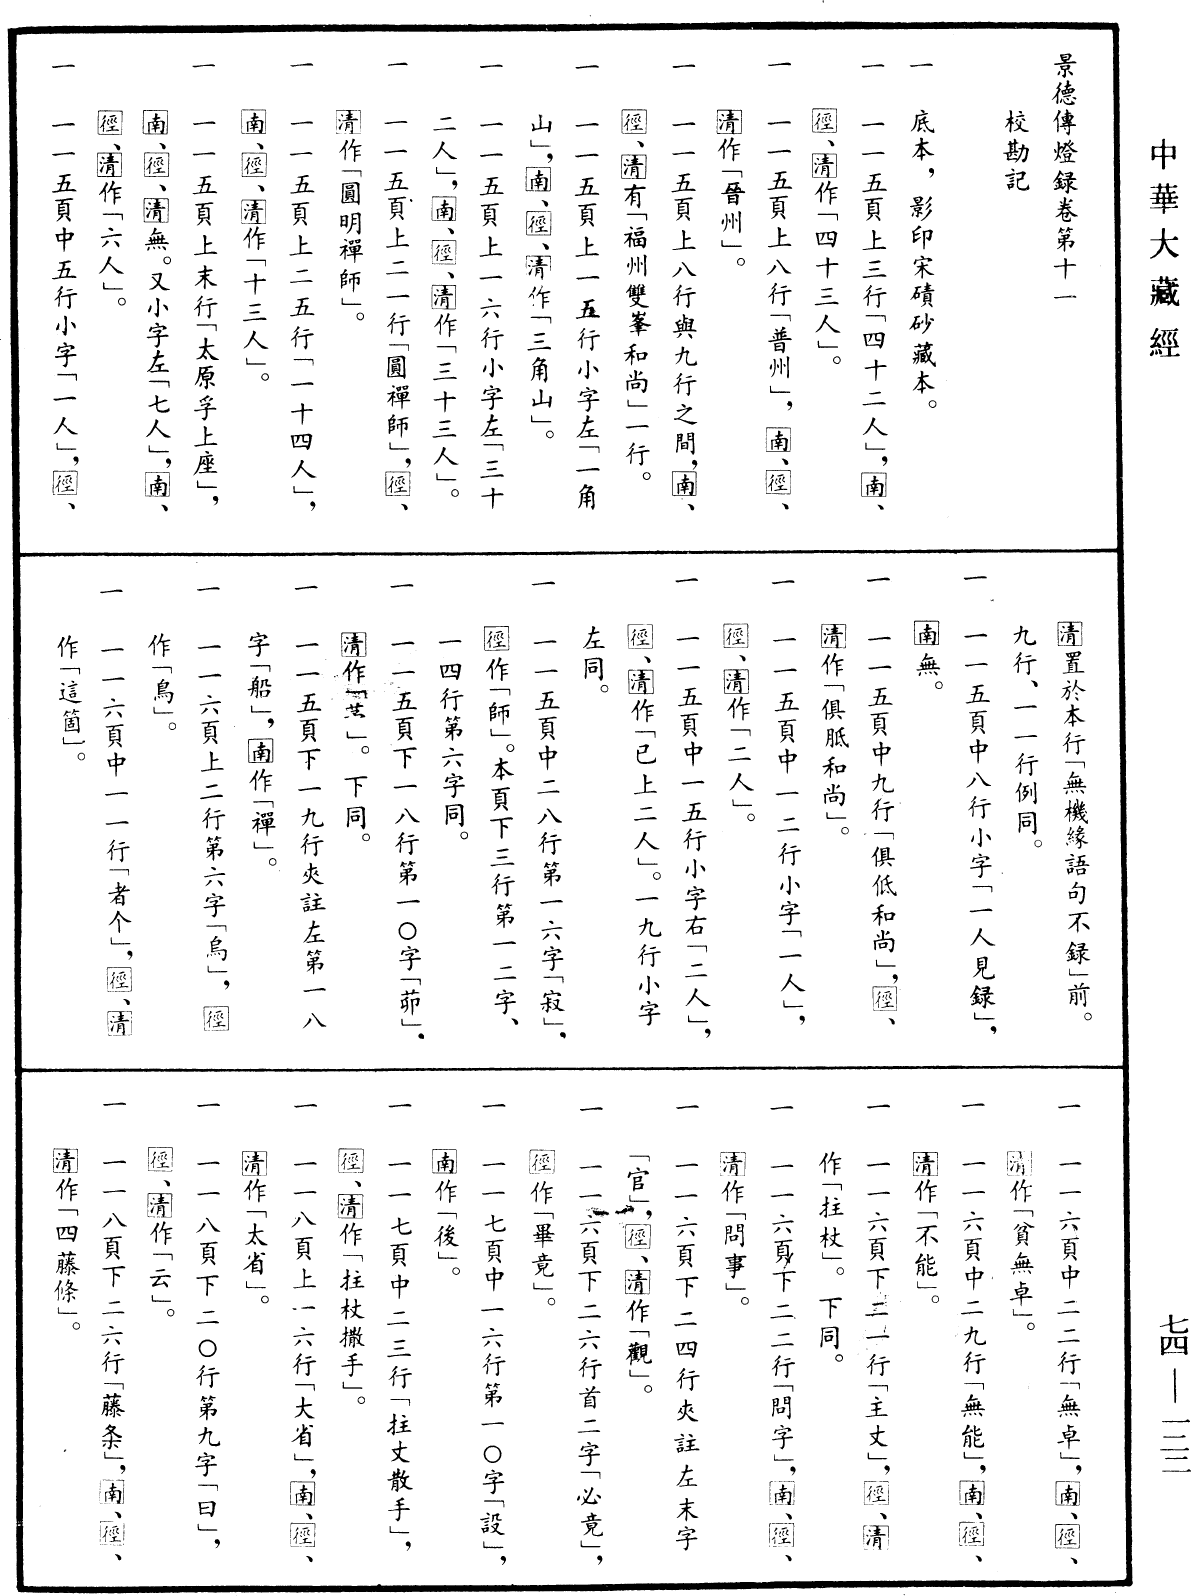 中華大藏經
七四—一二二
景德傳燈録卷第十一
校勘記
一　底本，影印宋磧砂藏本。
一　一一五頁上三行「四十二人」，南、
徑、清作「四十三人」。
一　一一五頁上八行「普州」，南、徑、
清作「晉州」。
一　一一五頁上八行與九行之間，南、
徑、清有「福州雙峯和尚」一行。
一　一一五頁上一五行小字左「一角
山」，南、徑、清作「三角山」。
一　一一五頁上一六行小字左「三十
二人」，南、徑、清作「三十三人」。
一　一一五頁上二一行「圓禪師」，徑、
清作「圓明禪師」。
一　一一五頁上二五行「一十四人」，
南、徑、清作「十三人」。
一　一一五頁上末行「太原孚上座」，
南、徑、清無。又小字左「七人」，南、
徑、清作「六人」。
一　一一五頁中五行小字「一人」，徑、
清置於本行「無機緣語句不録」前。
九行、一一行例同。
一　一一五頁中八行小字「一人見録」，
南無。
一　一一五頁中九行「俱低和尚」，徑、
清作「俱胝和尚」。
一　一一五頁中一二行小字「一人」，
徑、清作「二人」。
一　一一五頁中一五行小字右「二人」，
徑、清作「已上二人」。一九行小字
左同。
一　一一五頁中二八行第一六字「寂」，
徑作「師」。本頁下三行第一二字、
一四行第六字同。
一　一一五頁下一八行第一〇字「茆」，
清作「」。下同。
一　一一五頁下一九行夾註左第一八
字「船」，南作「禪」。
一　一一六頁上二行第六字「烏」，徑
作「鳥」。
一　一一六頁中一一行「者个」，徑、清
作「這箇」。
一　一一六頁中二二行「無卓」，南、徑、
清作「貧無卓」。
一　一一六頁中二九行「無能」，南、徑、
清作「不能」。
一　一一六頁下二一行「主丈」，徑、清
作「拄杖」。下同。
一　一一六頁下二二行「問字」，南、徑、
清作「問事」。
一　一一六頁下二四行夾註左末字
「官」，徑、清作「觀」。
一　一一六頁下二六行首二字「必竟」，
徑作「畢竟」。
一　一一七頁中一六行第一〇字「設」，
南作「後」。
一　一一七頁中二三行「拄丈散手」，
徑、清作「拄杖撒手」。
一　一一八頁上一六行「大省」，南、徑、
清作「太省」。
一　一一八頁下二〇行第九字「曰」，
徑、清作「云」。
一　一一八頁下二六行「藤条」，南、徑、
清作「四藤條」。